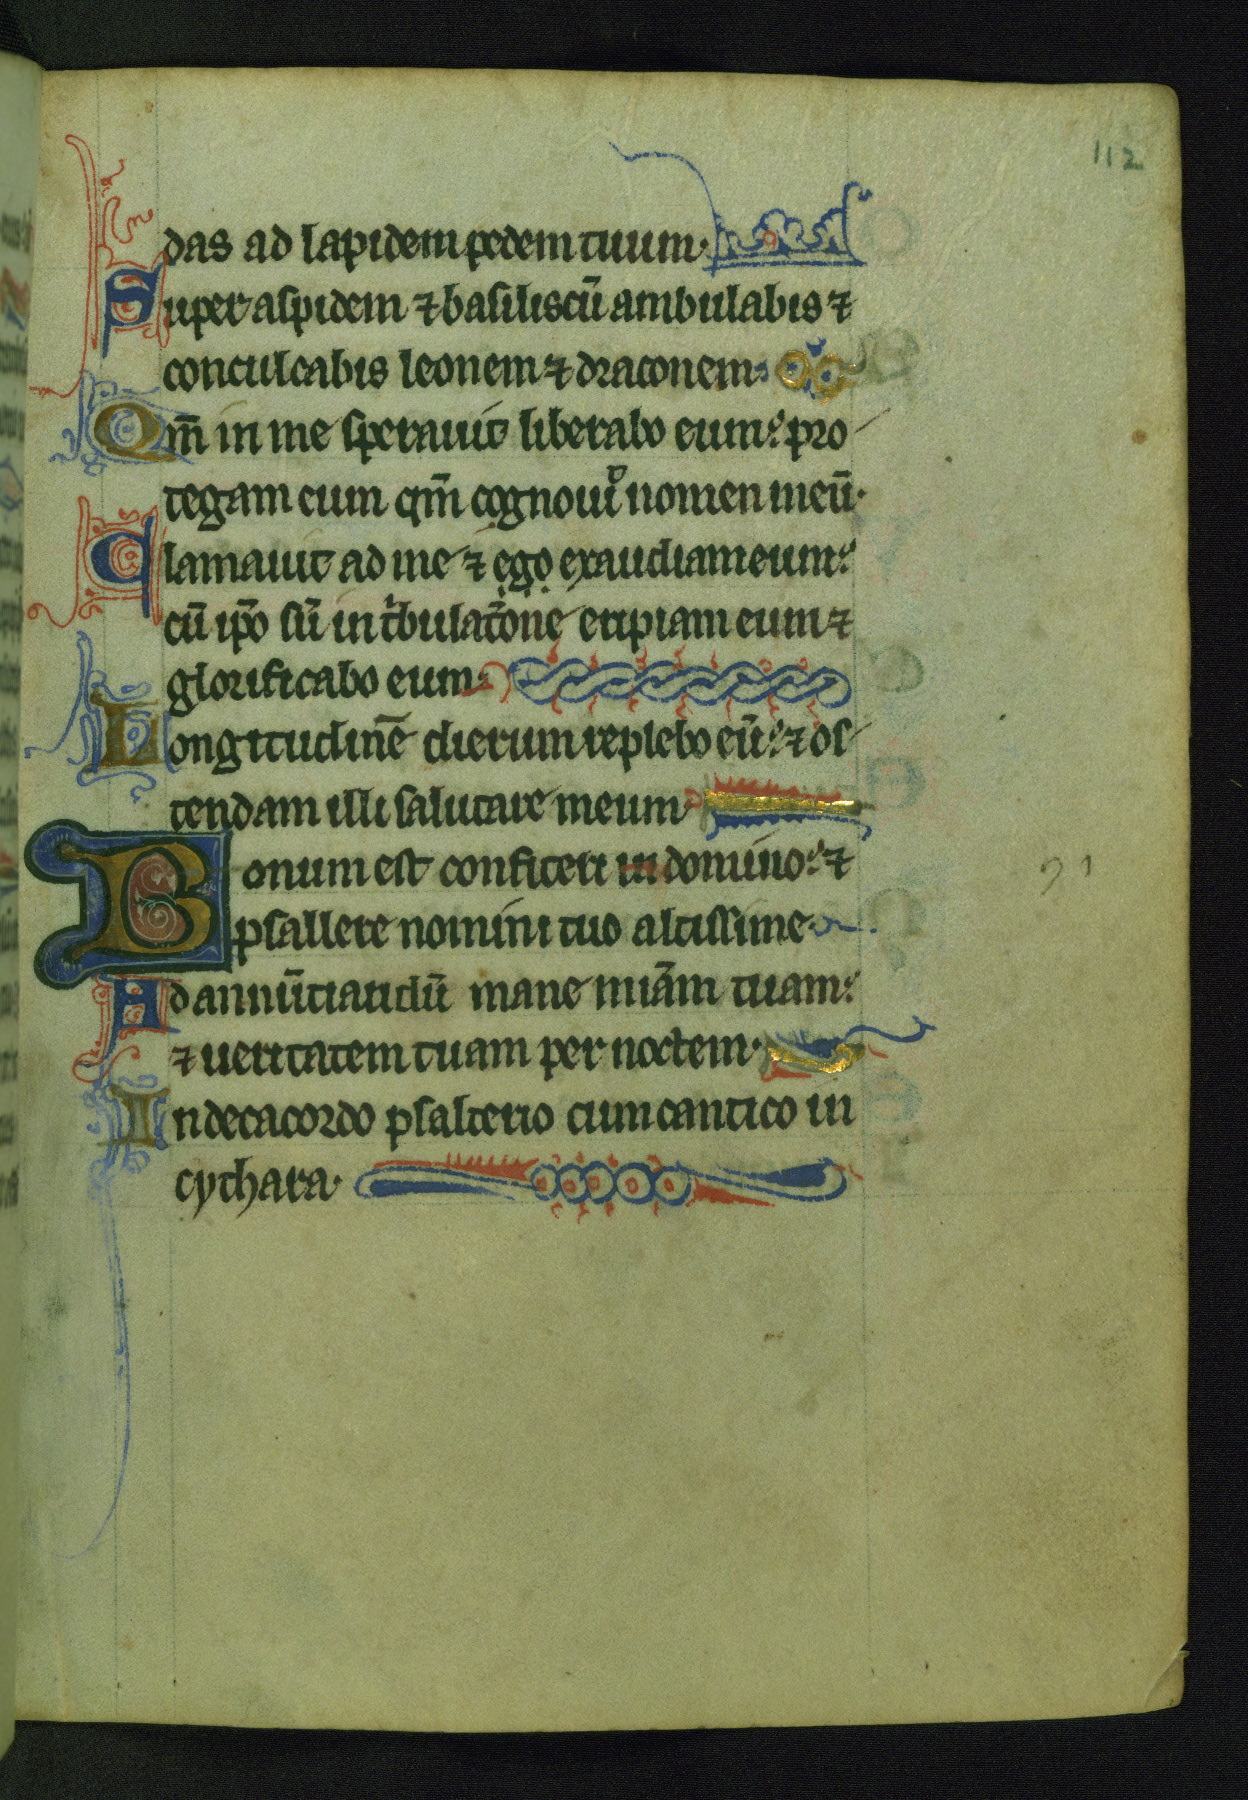 112
das ad lapidem pedem tuum·
Super aspidem ⁊ basiliscū ambulabis ⁊
conculcabis leonem ⁊ draconem·
Qm̄ in me sperauit liberabo eum: pro
tegam eum qm̄ cognouit nomen meū·
Clamauit ad me ⁊ ego exaudiam eum:
cū ip̄o sū in t͛bulat̄one eripiam eum ⁊
glorificabo eum·
Longitudinē dierum replebo eū: ⁊ os
tendam illi salutare meum·
Bonum est confiteri in domino: ⁊
psallere nomini tuo altissime·
Ad annūtiandū mane miām tuam:
⁊ ueritatem tuam per noctem·
In decacordo psalterio cum cantico in
cythara·
91